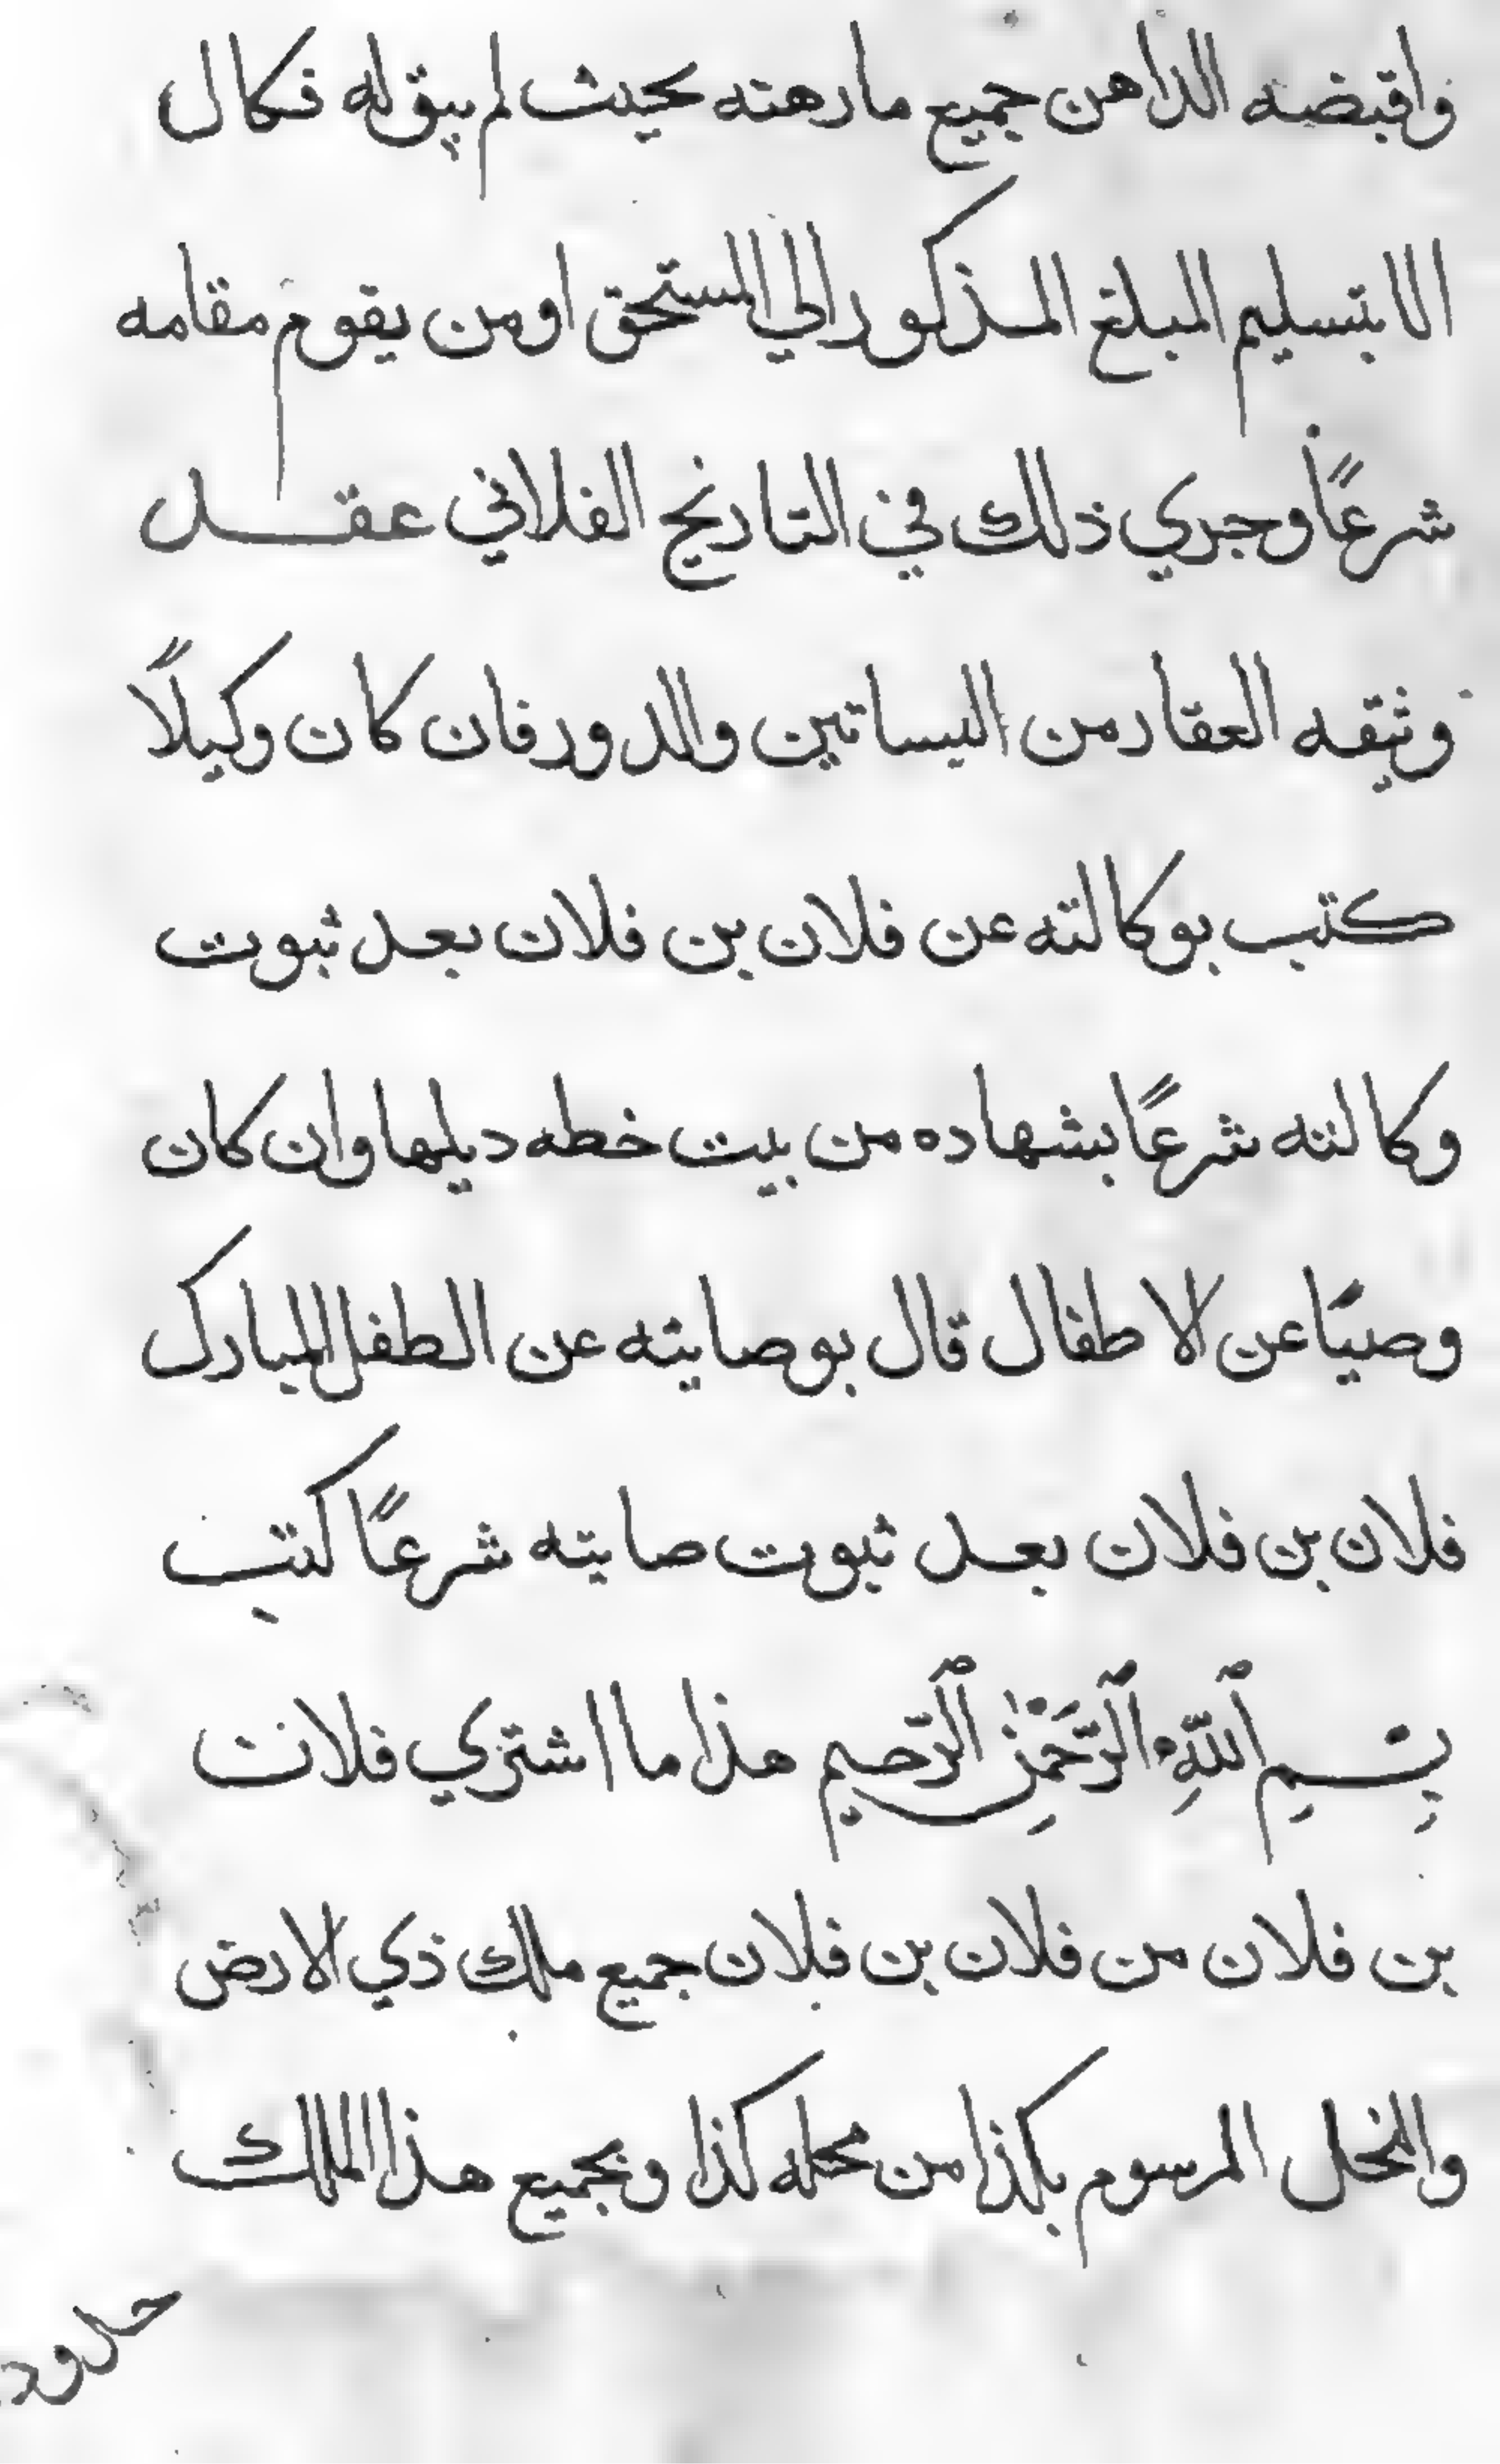 واقبضه الراهن جميع ما رهنته بحيث لم يبق له فكال
الا بتسليم المبلغ المذكور الي المستحق او من يقوم مقامه
شرعاً وجري ذلك في التاريخ الفلاني عقل
وثيقه العقار من البساتين والدور فان كان وكيلاً
كتب بوكالته عن فلان بن فلان بعد ثبوت
وكالته شرعاً بشهاده من بيت خطه ديلها وان كان
وصيًا عن لاطفال قال بوصايته عن الطفل المبارك
فلان بن فلان بعد ثبوت صايته شرعاً كتب
بِسْــمِ ٱللّٰهِ ٱلرَّحْمٰنِ ٱلرَّحيم هذا ما اشتري فلان
بن فلان من فلان بن فلان جميع ملك ذي الارض
والنخل المرسوم بكذا من محله كذا وبجميع هذا الملك
حدود